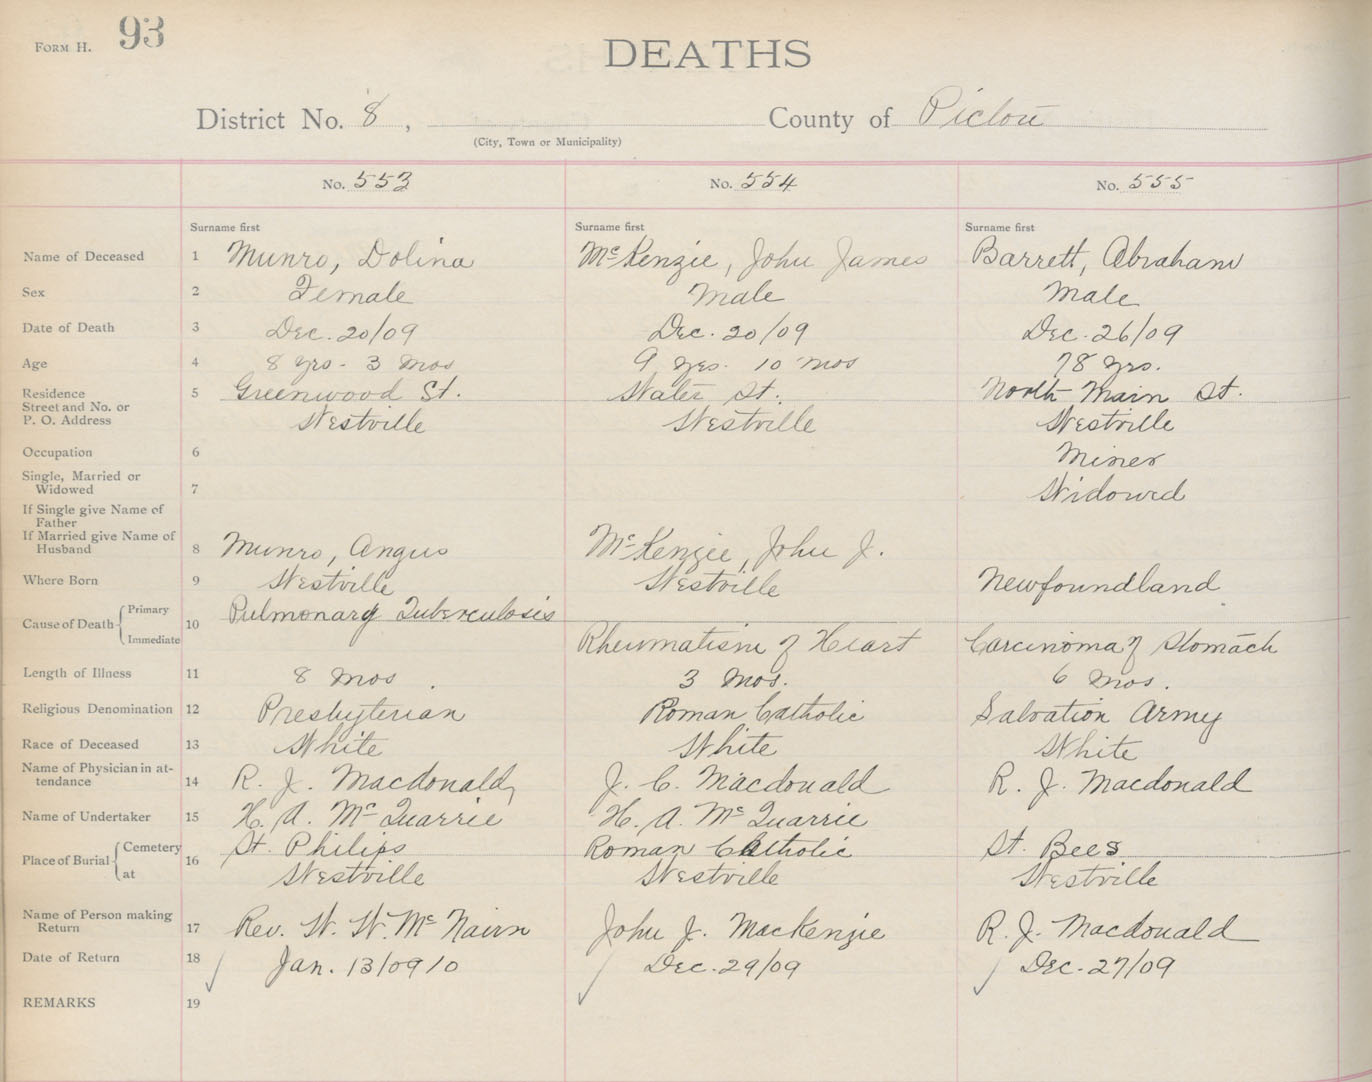 Form H. 93
DEATHS
District No. 8, County of Pictou
(City, Town or Municipality)
No. 553 No. 554 No. 555
Surname first Surname first Surname first
Name of Deceased 1 Munro, Dolina McKenzie, John James Barrett, Abraham
Sex 2 Female Male Male
Date of Death 3 Dec. 20/09 Dec. 20/09 Dec. 26/09
Age 4 8 yrs - 3 mos 9 yrs. 10 mos 78 yrs.
Residence 5 Greenwood St. Water St. North Main St.
Street and No. or
P. O. Address Westville Westville Westville
Occupation 6 Miner
Single, Married or
Widowed 7 Widowed
If Single give Name of
Father
If Married give Name of
Husband 8 Munro, Angus McKenzie, John J.
Where Born 9 Westville Westville Newfoundland
Cause of Death { Primary 10 Pulmonary Tuberculosis
Immediate Rheumatism of Heart Carcinoma of Stomach
Length of Illness 11 8 mos. 3 mos. 6 mos.
Religious Denomination 12 Presbyterian Roman Catholic Salvation Army
Race of Deceased 13 White White White
Name of Physician in at-
tendance 14 R. J. Macdonald J. C. Macdonald R. J. Macdonald
Name of Undertaker 15 H. A. McQuarrie H. A. McQuarrie
Place of Burial { Cemetery 16 St. Philips Roman Catholic St. Bees
at Westville Westville Westville
Name of Person making
Return 17 Rev. W. W. McNairn John J. MacKenzie R. J. Macdonald
Date of Return 18 Jan. 13/09 10 Dec. 29/09 Dec. 27/09
REMARKS 19